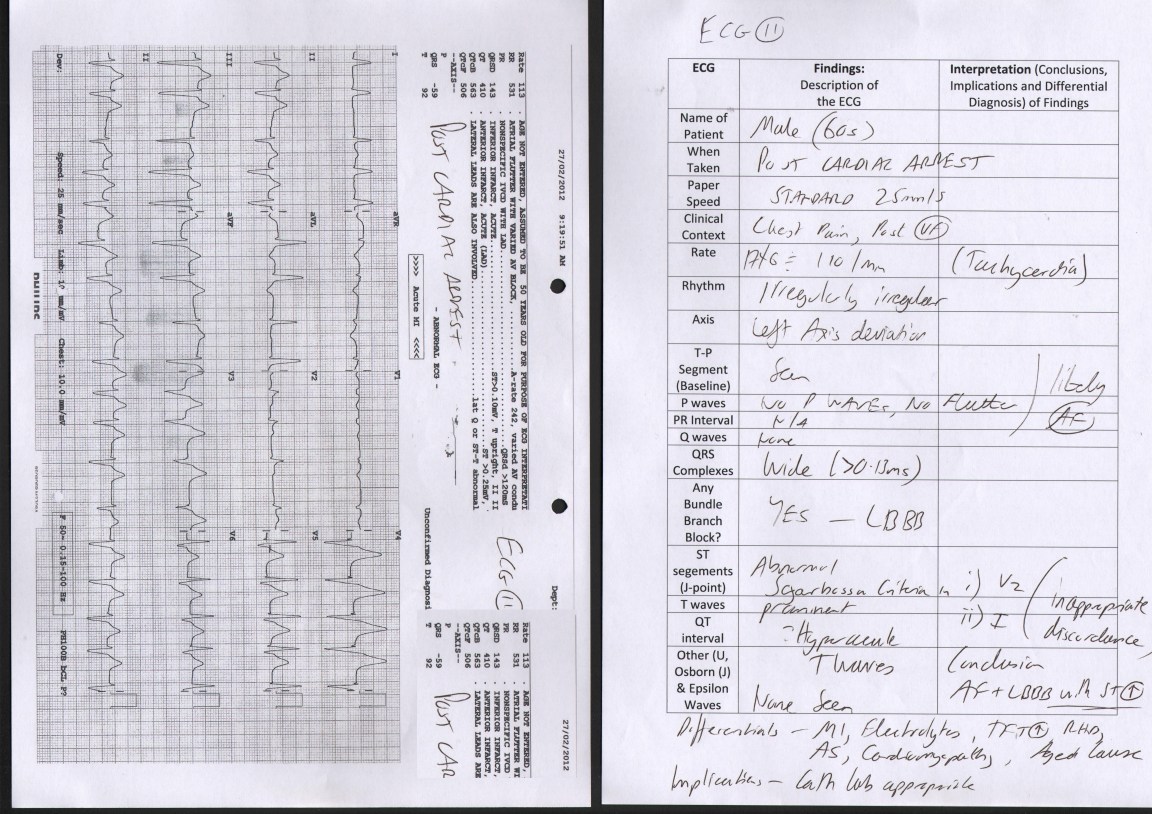 27/02/2012 9:19:51 AM
Dept:
Rate 113 . AGE NOT ENTERED, ASSUMED TO BE 50 YEARS OLD FOR PURPOSE OF ECG INTERPRETATI
RR 531 . ATRIAL FLUTTER WITH VARIED AV BLOCK, A-rate 242, varied AV condu
PR . NONSPECIFIC IVCD WITH LAD QRSd >120mS
QRSD 143 . INFERIOR INFARCT, ACUTE ST>0.10mV, T upright, II II
QT 410 . ANTERIOR INFARCT, ACUTE (LAD) ST >0.25mV,
QTcB 563 . LATERAL LEADS ARE ALSO INVOLVED lat Q or ST-T abnormal
QTcF 506
--AXIS--
P
QRS -59
T 92
POST CARDIAC ARREST
ECG 11
- ABNORMAL ECG -
>>>> Acute MI <<<<
Unconfirmed Diagnosi
I aVR V1 V4
II aVL V2 V5
III aVF V3 V6
II
Dev: Speed: 25 mm/sec Limb: 10 mm/mV Chest: 10.0 mm/mV F 50~ 0.15-100 Hz PH100B P?
PHILIPS
27/02/2012
Rate 113 . AGE NOT ENTERED,
RR 531 . ATRIAL FLUTTER WI
PR . NONSPECIFIC IVCD
QRSD 143 . INFERIOR INFARCT,
QT 410 . ANTERIOR INFARCT,
QTcB 563 . LATERAL LEADS ARE
QTcF 506
--AXIS--
P
QRS -59
T 92
POST CAR
ECG 11
ECG Findings: Description of the ECG Interpretation (Conclusions, Implications and Differential Diagnosis) of Findings
Name of Patient Male (60s)
When Taken Post CARDIAC ARREST
Paper Speed STANDARD 25mm/s
Clinical Context Chest Pain, Post VF
Rate 110/min (Tachycardia)
Rhythm Irregularly irregular
Axis Left Axis deviation
T-P Segment (Baseline) Seen likely
P waves No P WAVES, No Flutter AF
PR Interval N/A
Q waves None
QRS Complexes Wide (>0.13ms)
Any Bundle Branch Block? YES - LBBB
ST segements (J-point) Abnormal Sgarbossa Criteria in i) V2
T waves prominent ii) I inappropriate discordance
QT interval Hyperacute
Other (U, Osborn (J) & Epsilon Waves T waves Conclusion
None Seen AF + LBBB with ST ↑
Differentials - MI, Electrolytes, TFT ↑, RHD,
AS, Cardiomyopathy, Aged Cause
Implications - Cath Lab appropriate